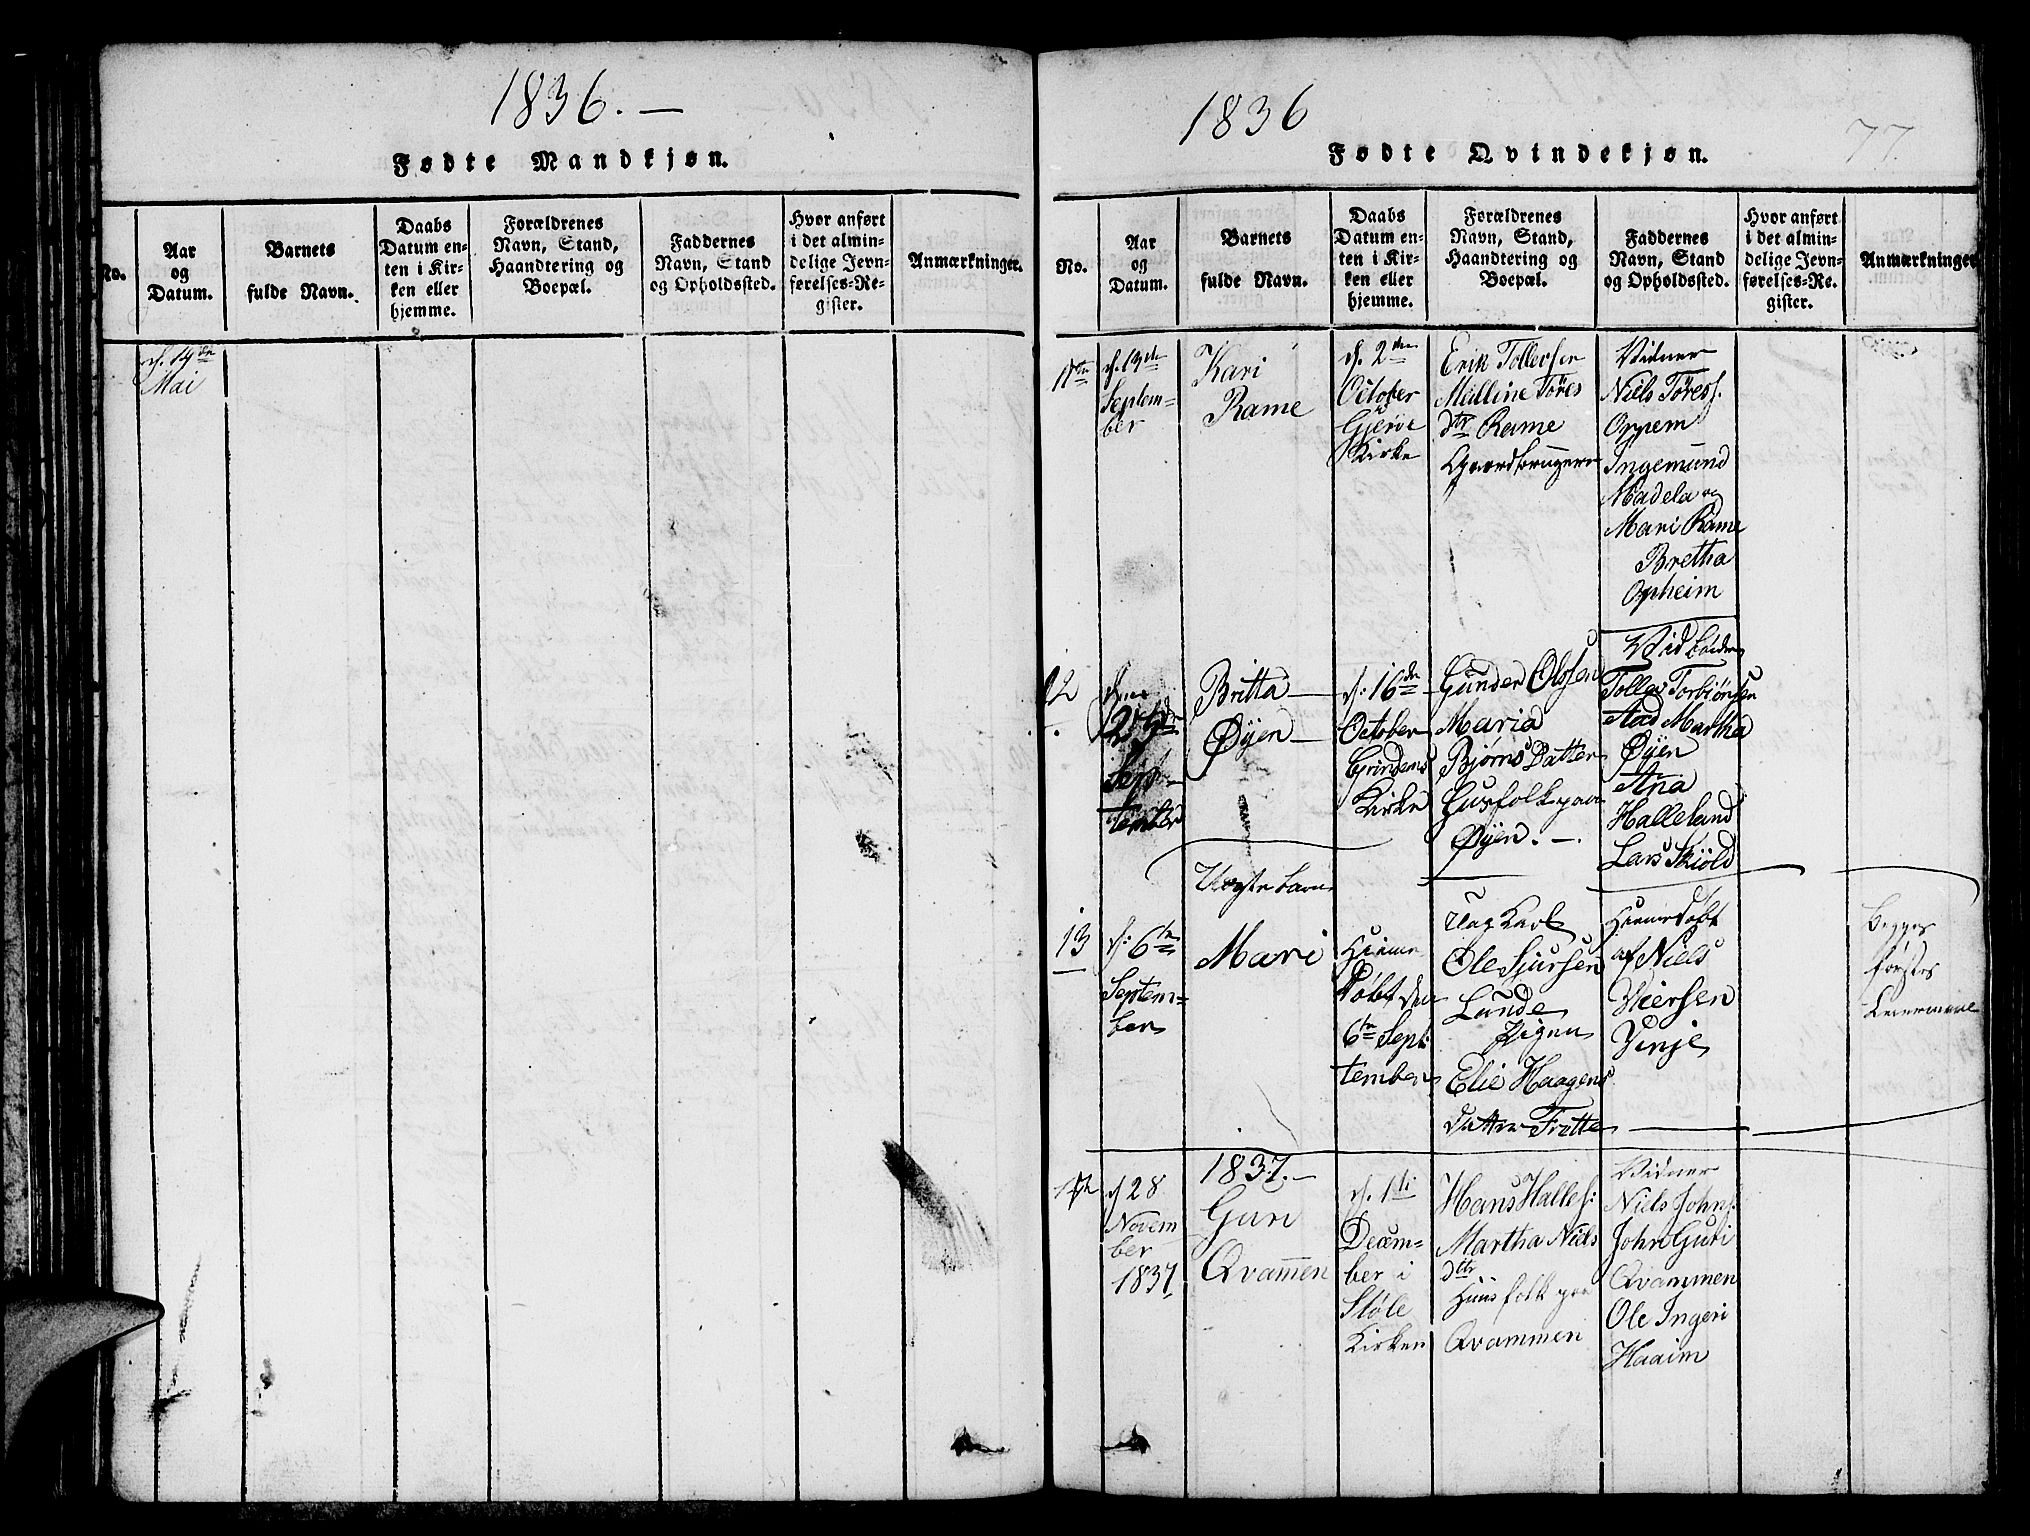 1836.—
Fødte Mandkjøn.
No.
Aar
og
Datum.
Barnets
fulde Navn.
Daabs
Datum en-
ten i Kir-
ken eller
hjemme.
Forældrenes
Navn, Stand,
Haandtering og
Boepæl.
Faddernes
Navn, Stand
og Opholdssted.
Hvor anført
i det almin-
delige Jevn-
førelses-Re-
gister.
Anmærkninger.
d. 14de
Mai
1836
77.
Fødte Qvindekjøn.
No.
Aar
og
Datum.
Barnets
fulde Navn.
Daabs
Datum en-
ten i Kir-
ken eller
hjemme.
Forældrenes
Navn, Stand,
Haandtering og
Boepæl.
Faddernes
Navn, Stand
og Opholdssted.
Hvor anført
i det almin-
delige Jevn-
førelses-Re-
gister.
Anmærkninger
11te
d. 13de
Septem=
ber
Kari
Rame
d. 2den
October
Gjerde
Kirke
Erik Tollefsen
Malline Töres
dtr Rame
Gaardbrugere
Vidner
Niels Töress.
Oppem
Ingemund
Madela og
Mari Rame
Bretha
Opheim
12
Sep-
tember
Britta
Øyen
d: 16de
October
Grindems
Kirke
Gunder Olssen
Maria
Bjørns Datter
Husfolk paa
Øyen.—
Tollef Torbiønsen
Aad Martha
Øyen
Ana
Halleland
Lars Skiöld
Uægte barn
13
d: 6te
Septem=
ber
Mari
Hieme
Døbt den
6te Sept
tember
Ung Karl
Ole Sjursen
Lunde
Pigen
Elie Haagens
Datter Frette
Hiemedøbt
af Niels
Viersen
Vinje
Begges
første
Leiermaal
14de
d 28
Novem
ber
1837
1837.—
Guri
Qvammen
d. 1ti
Decem=
ber i
Støle
Kirken
Hans Halles:
Martha Niels
dttr
Huusfolk paa
Qvammen
Vidner
Niels Johns:
John Guri
Qvammen
Ole Ingeri
Haaim